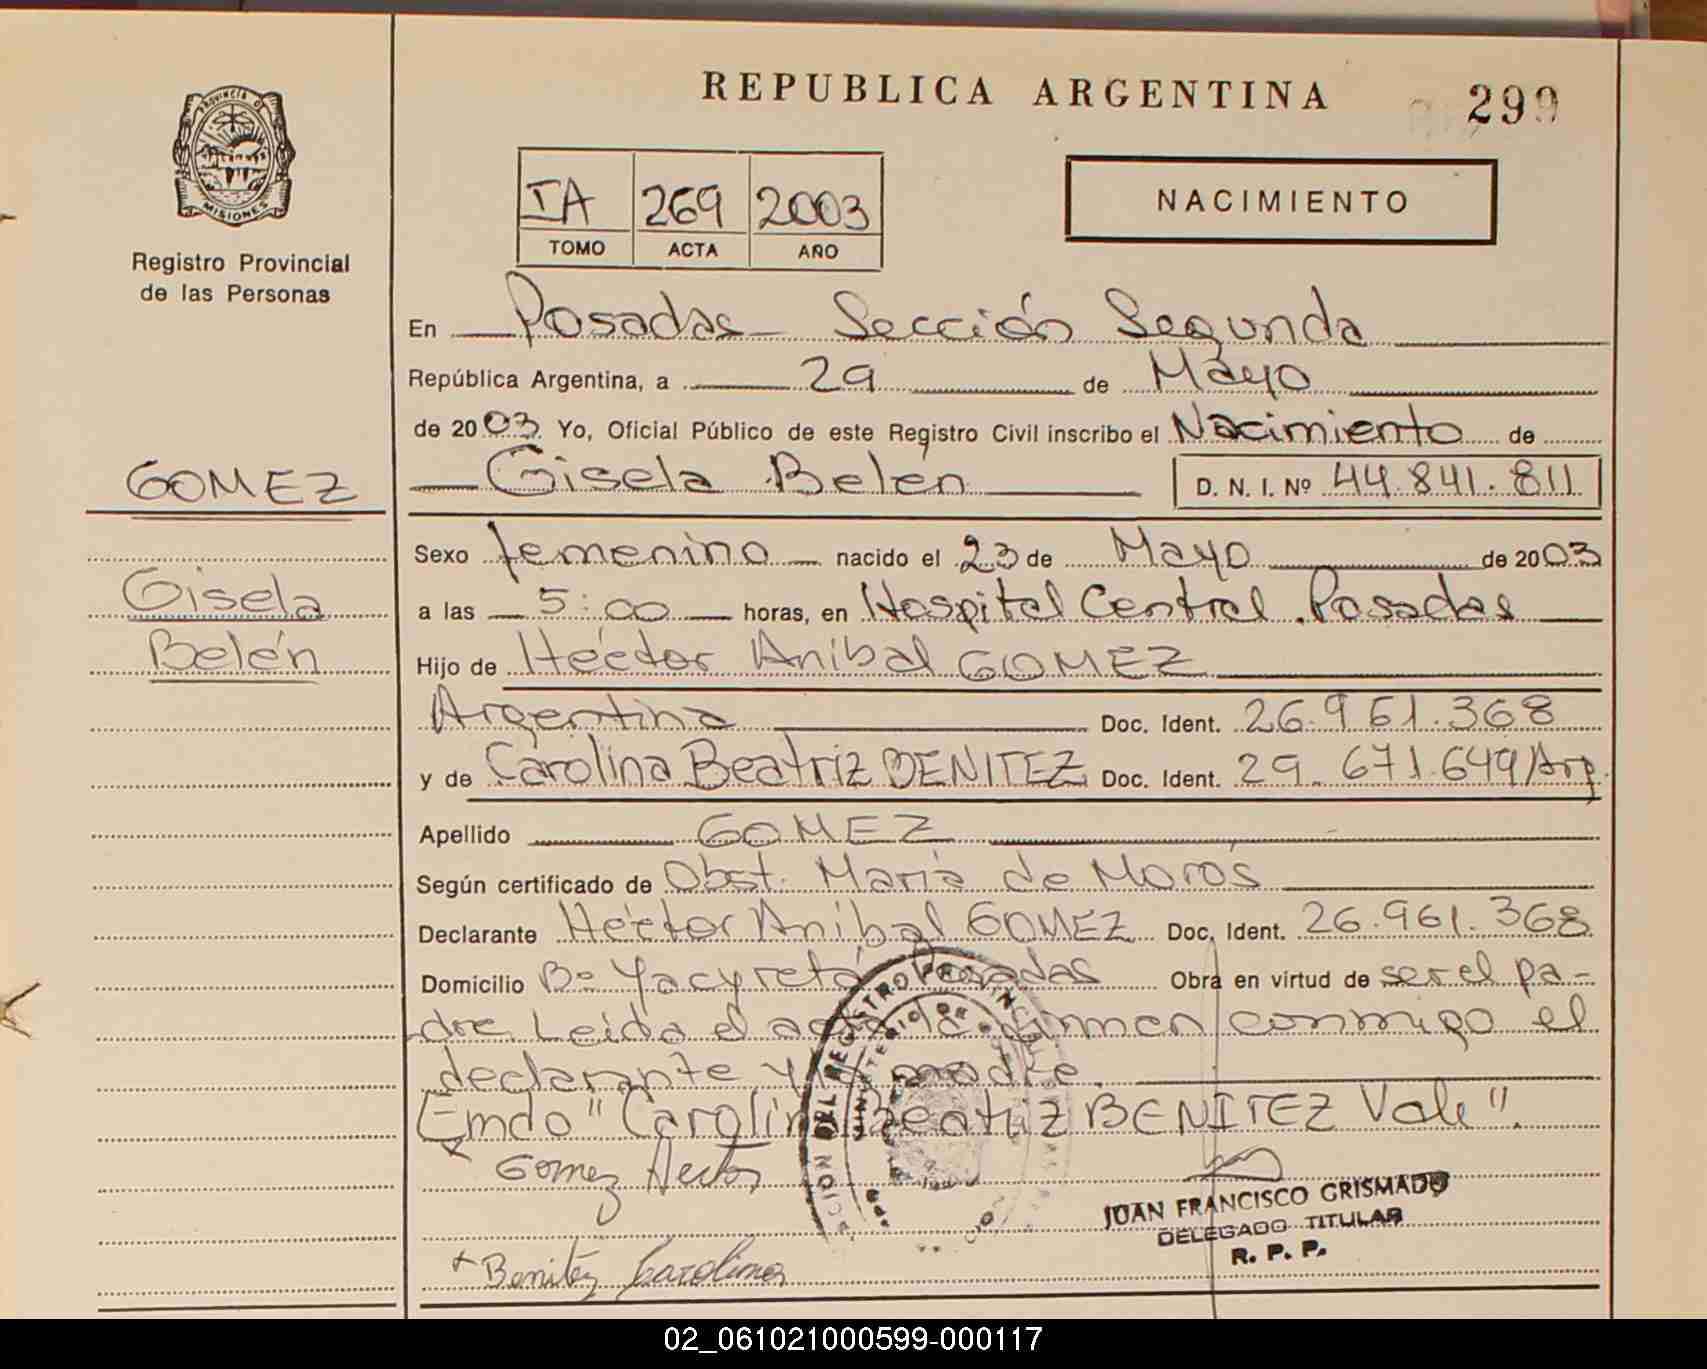 REPUBLICA ARGENTINA
299
PROVINCIA DE
MISIONES
Registro Provincial
de las Personas
IA 269 2003
TOMO ACTA AÑO
NACIMIENTO
En Posadas - Sección Segunda
República Argentina, a 29 de Mayo
de 2003 Yo, Oficial Público de este Registro Civil inscribo el Nacimiento de
GOMEZ
Gisela Belén D. N. I. Nº 44.841.811
Sexo femenino nacido el 23 de Mayo de 2003
Gisela
a las 5:00 horas, en Hospital Central. Posadas
Belén
Hijo de Héctor Anibal GOMEZ
Argentina Doc. Ident. 26.961.368
y de Carolina Beatriz BENITEZ Doc. Ident. 29.671.649/Arg.
Apellido GOMEZ
Según certificado de Obst. María de Moros
Declarante Héctor Anibal GOMEZ Doc. Ident. 26.961.368
Domicilio Bº Yacyretá Posadas Obra en virtud de ser el pa-
dre. Leída el acta la firman conmigo el
declarante y la madre.
Emdo "Carolina Beatriz BENITEZ Vale".
Gomez Hector
JUAN FRANCISCO GRISMADO
DELEGADO TITULAR
R. P. P.
Benitez Carolina
02_061021000599-000117